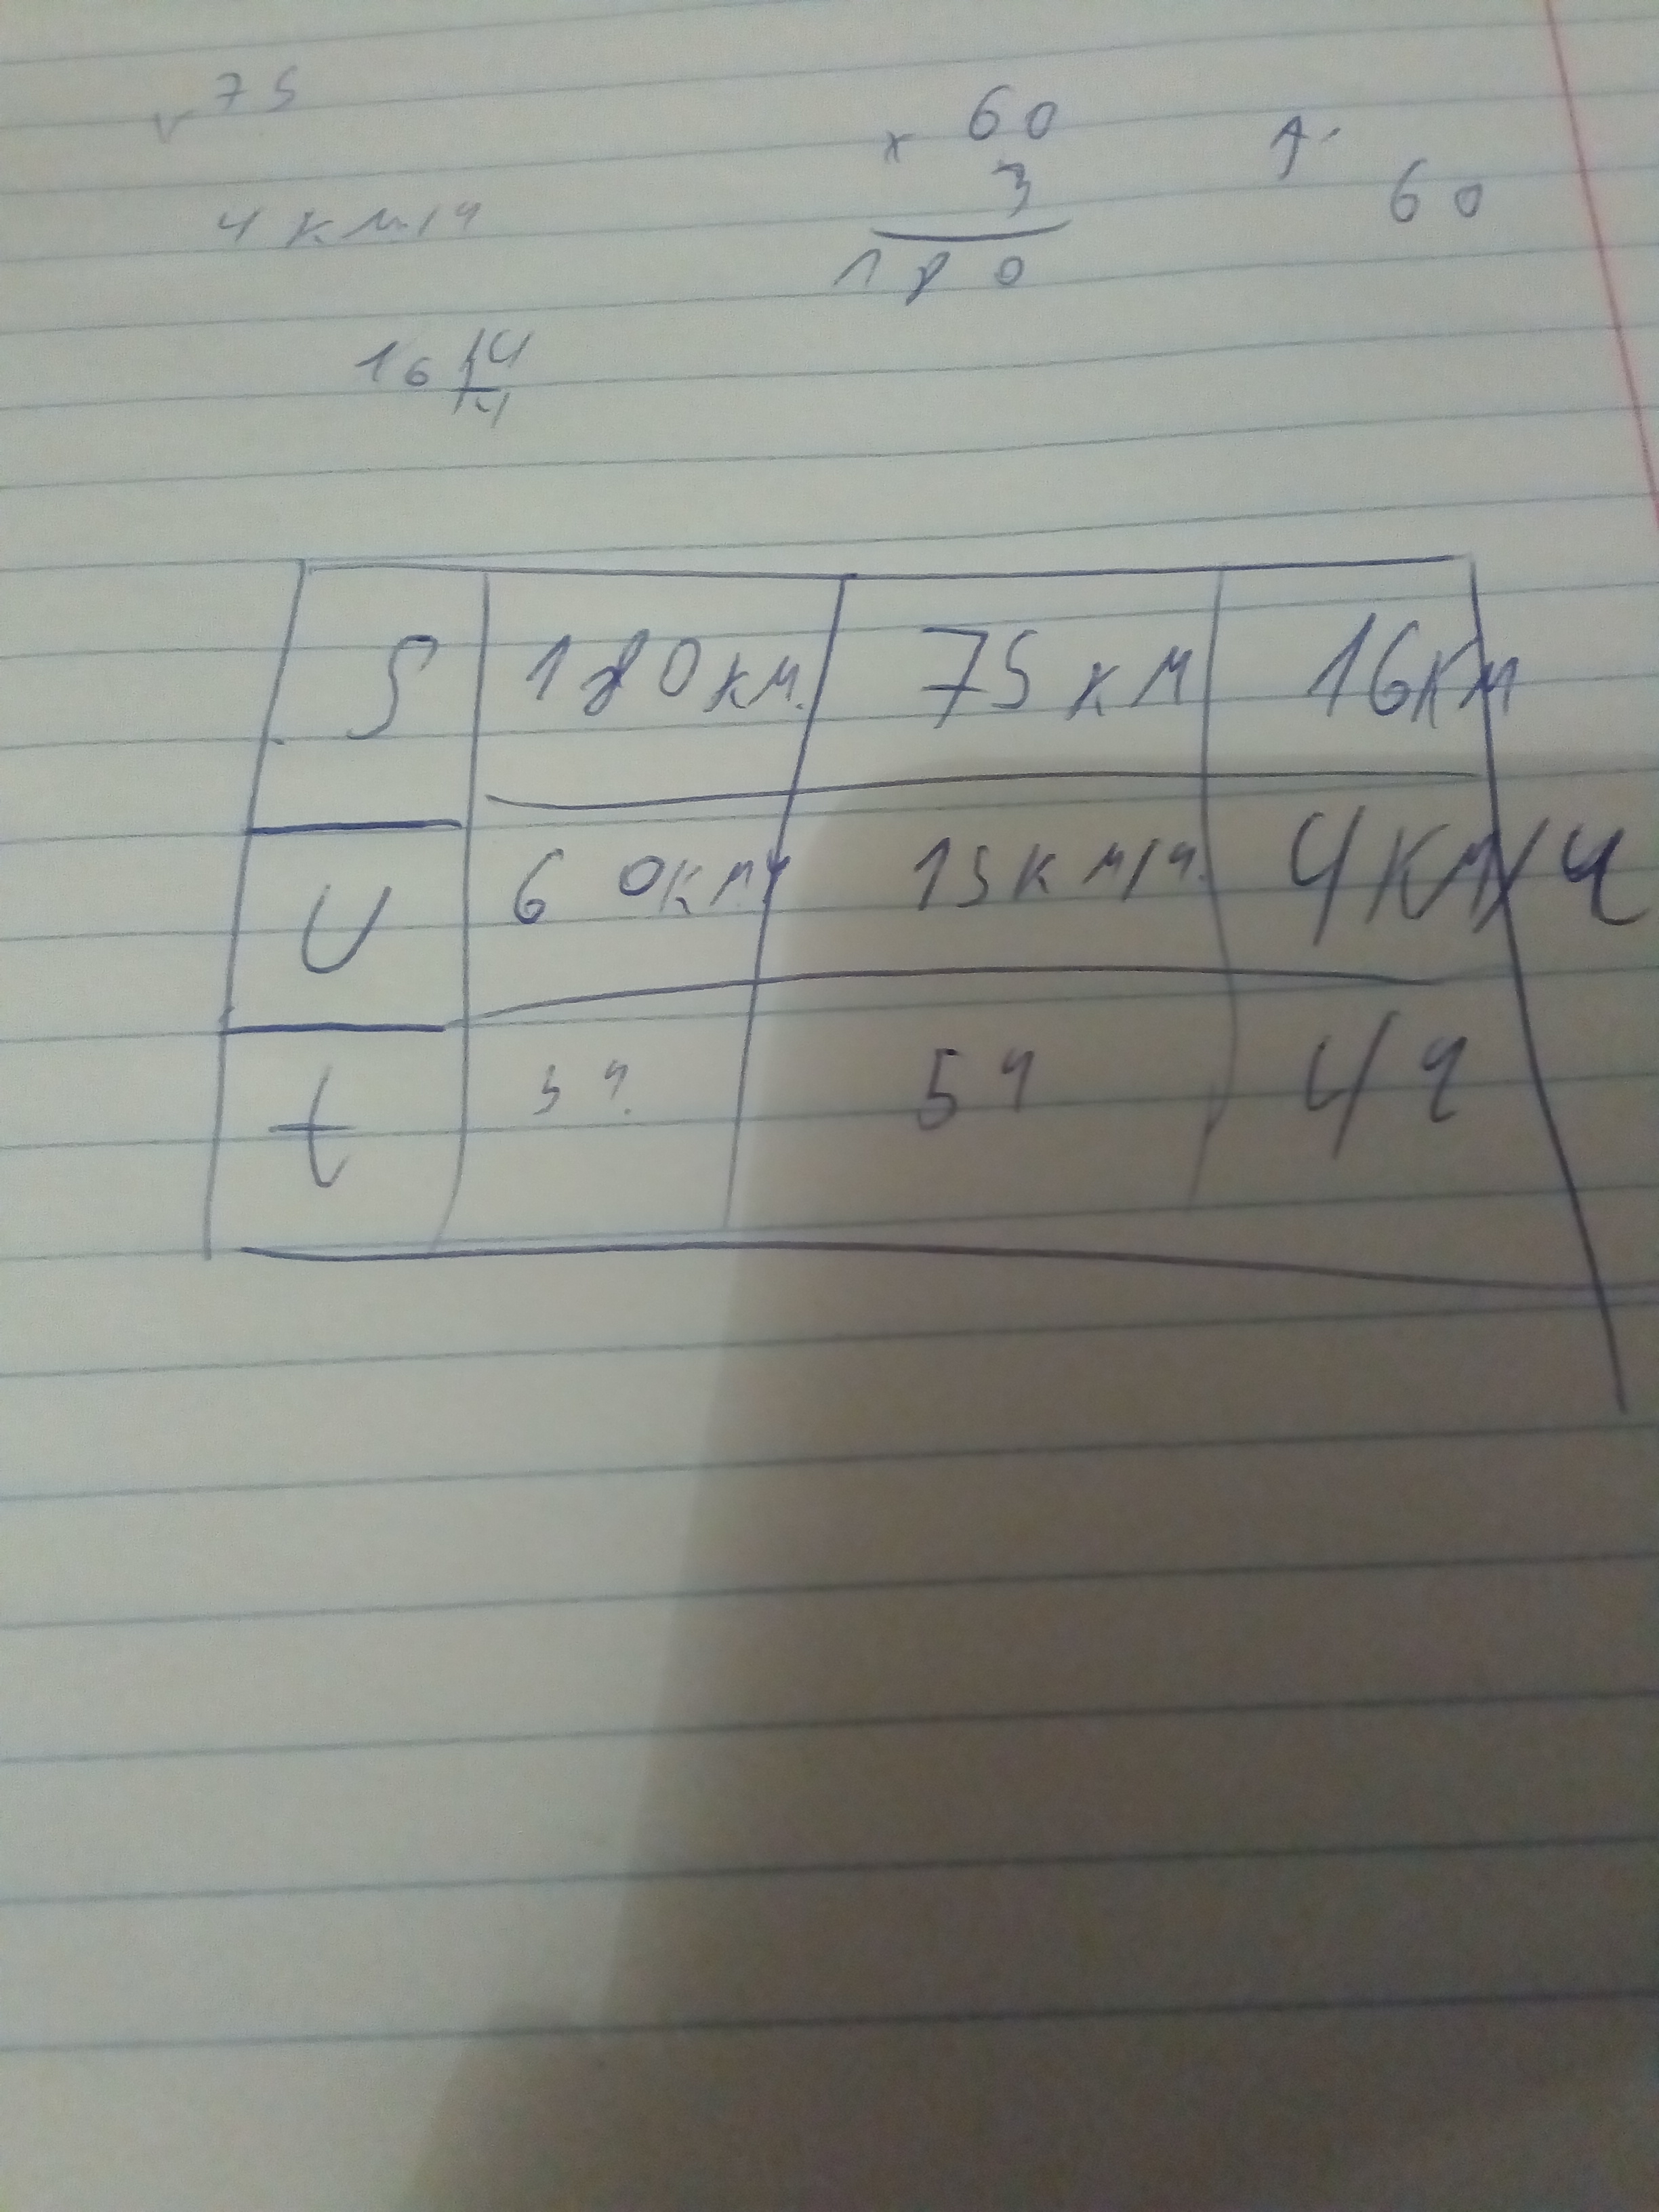 75
× 60
3
180
60
4 км/ч
16 4
4
S 180 км. 75 км 16 км
υ 60 км/ч 15 км/ч. 4 км/ч
t 3 ч. 5 ч 4 ч